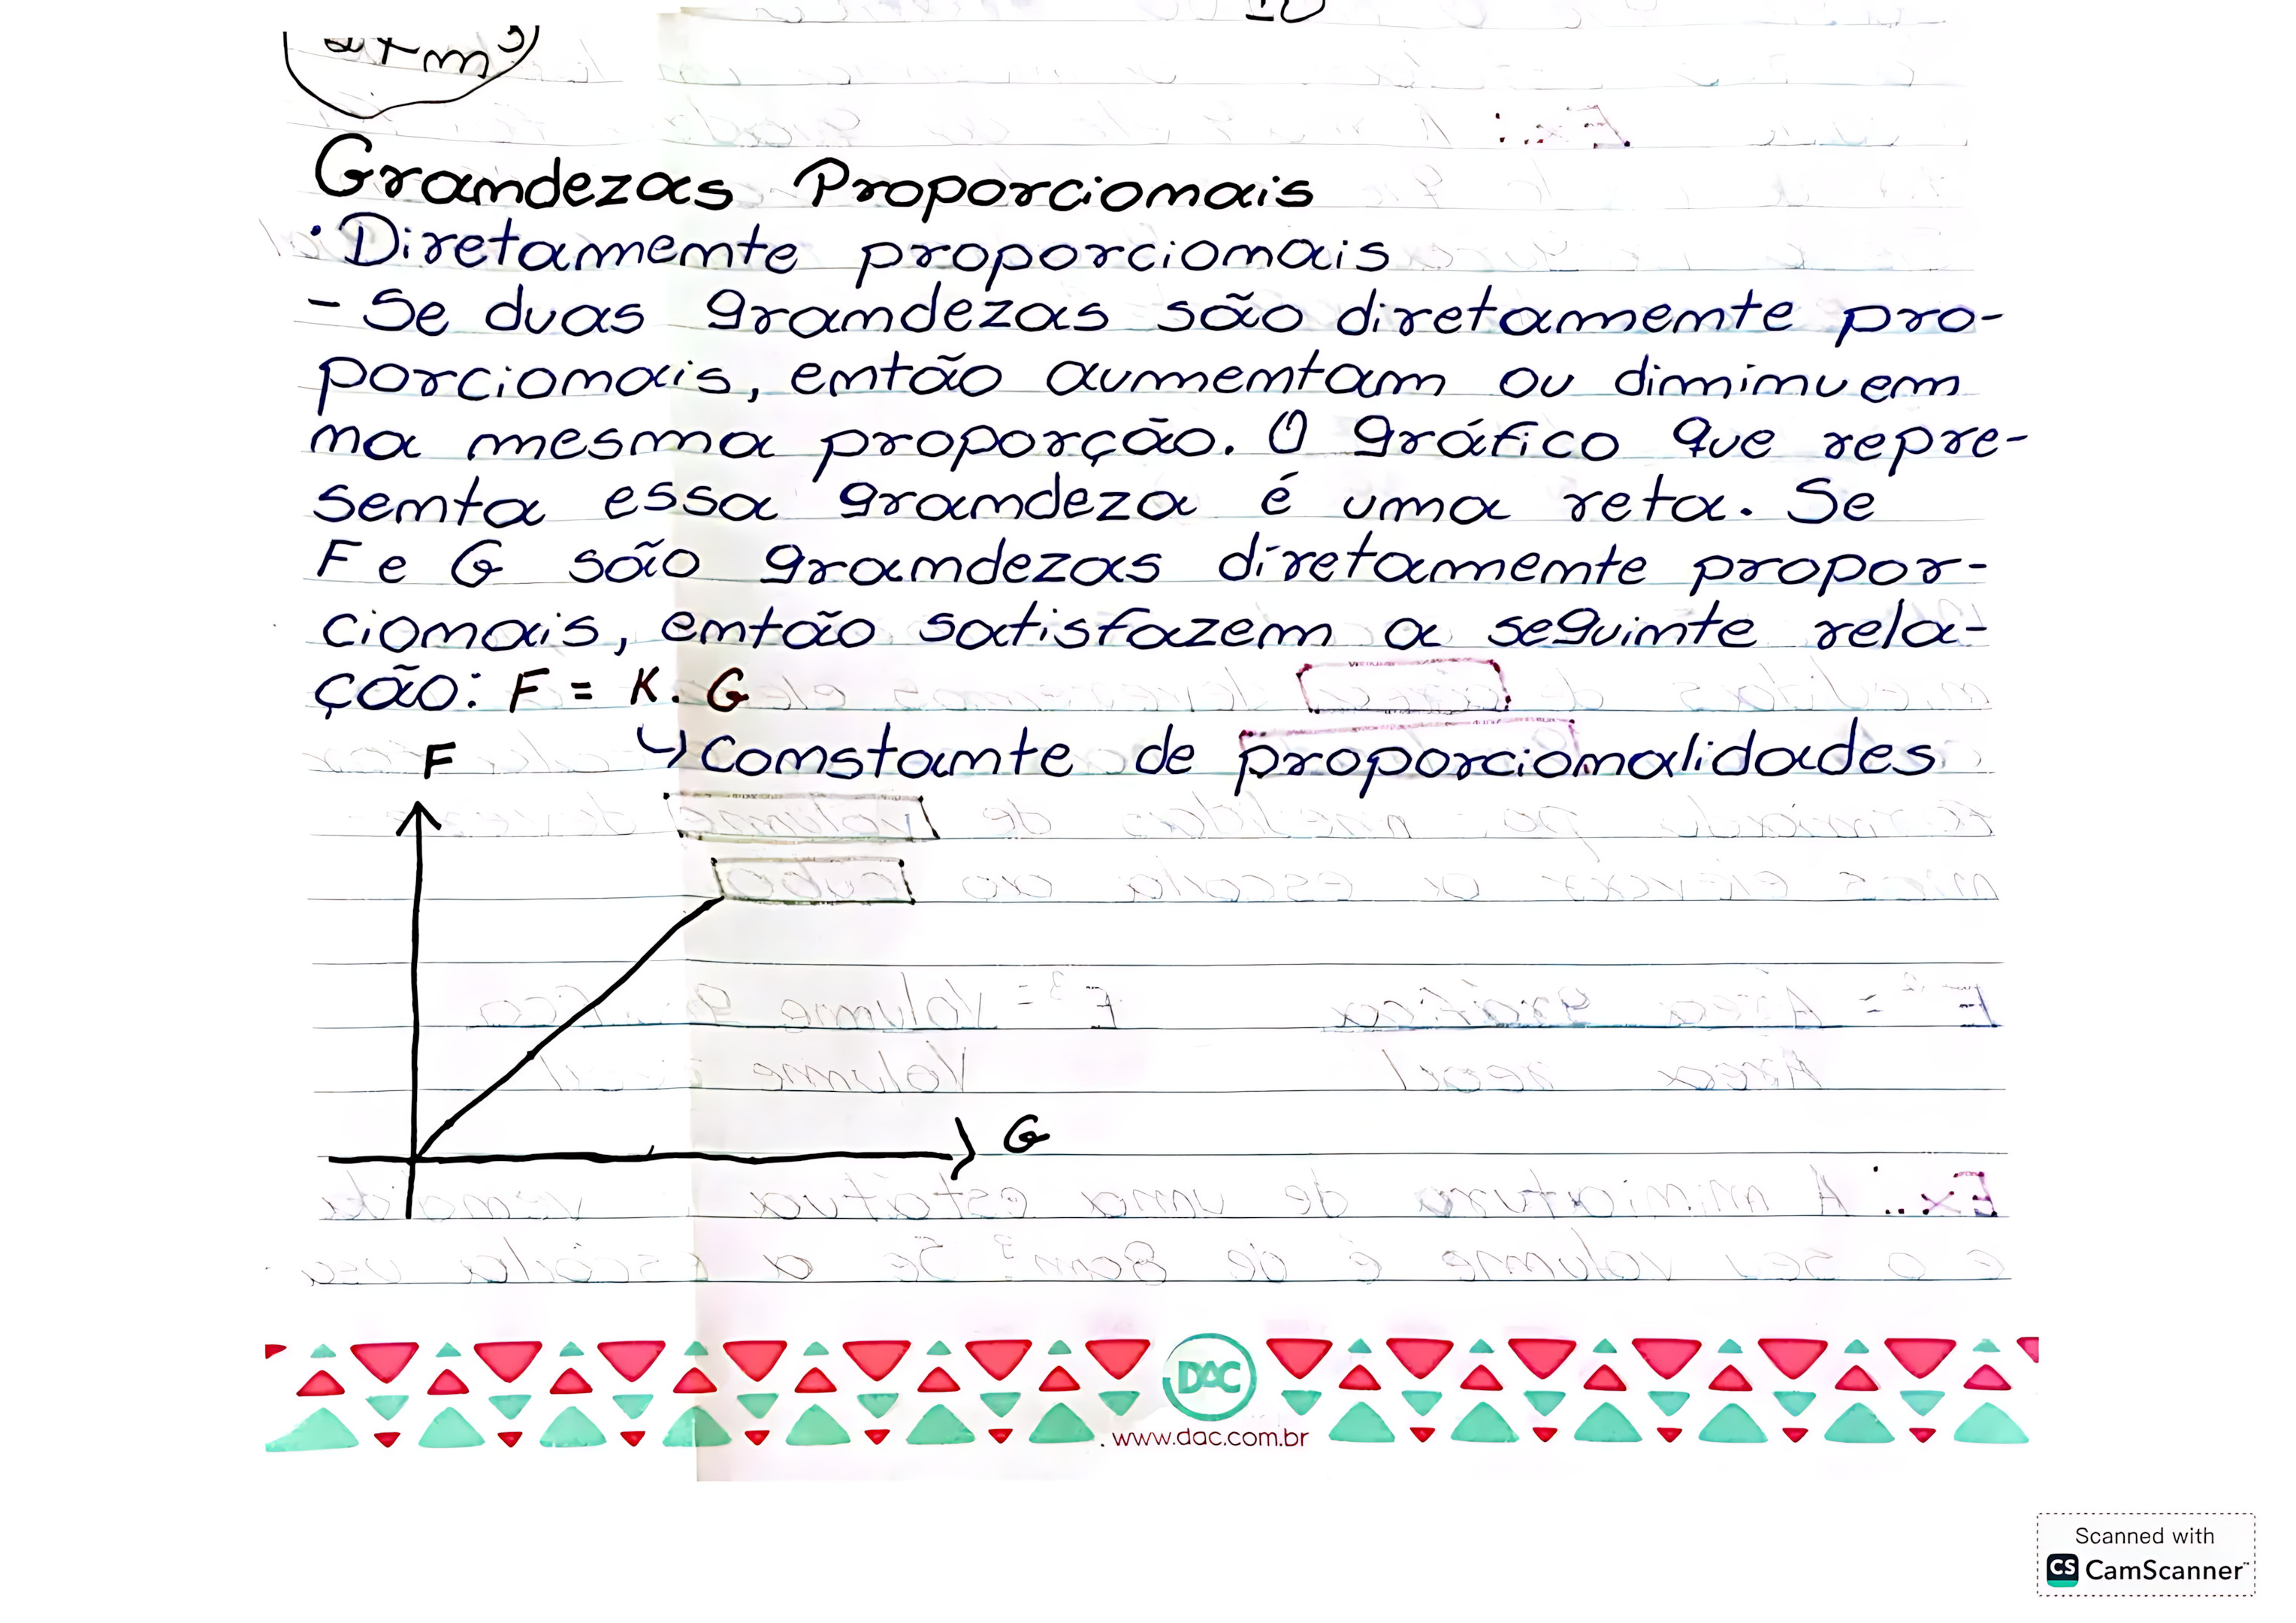 m³
Grandezas Proporcionais
· Diretamente proporcionais
- Se duas grandezas são diretamente pro-
porcionais, então aumentam ou diminuem
na mesma proporção. O gráfico que repre-
senta essa grandeza é uma reta. Se
F e G são grandezas diretamente propor-
cionais, então satisfazem a seguinte rela-
ção: F = K. G
↳ Constante de proporcionalidades
F
G
DAC
www.dac.com.br
Scanned with
CS CamScanner